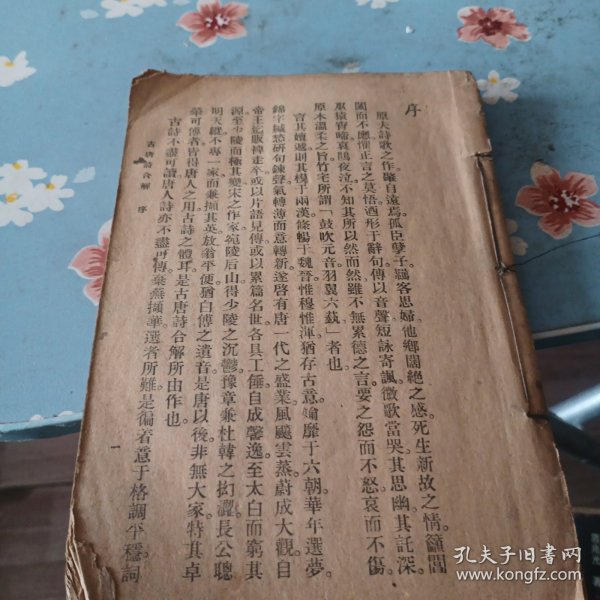 序
原夫詩歌之作。離自遠焉。孤臣孽子。羈客思婦。他鄉闊絕之感。死生新故之情。籲閽
闔而不應。懽正言之莫悟。迺形于辭句。傳以音聲。短詠寄諷。微歌當哭。其思幽。其託深。
猿猿宵啼。哀鵑夜泣。不知其所以然而然。雖不無累德之言。要之怨而不怒。哀而不傷。
原本溫柔之旨。竹宅所謂「鼓吹元音。羽翼六藝」者也。
言其嬗遞。則其樸于兩漢。條暢十魏晉。惟穆惟渾。猶存古意。婾靡于六朝。華年選夢。
錦字緘愁。研句鍊聲。氣轉薄而意轉新。遂啓有唐一代之盛業。風颷雲蒸。蔚成大觀。自
帝王訖販稗走卒。或以片語見傳。或以累篇名世。各具工倕。自成馨逸。至太白而窮其
源。至少陵而極其變。宋之作家。宛陵后山得少陵之沉鬱。豫章乘杜韓之拗澀。長公聰
明天縱。不專一家。而兼擷其英。放翁平便。猶白傅之遺音。是唐以後。非無大家。特其卓
犖可傳者。皆得唐人之用。古詩之體耳。是古唐詩合解所由作也。
古詩不盡可讀。唐人詩亦不盡可傳。棄蕪擷華。選者所難。是徧着意于格調平穩。詞
古唐詩合解 序
一
孔夫子旧书网
www.kongfz.com